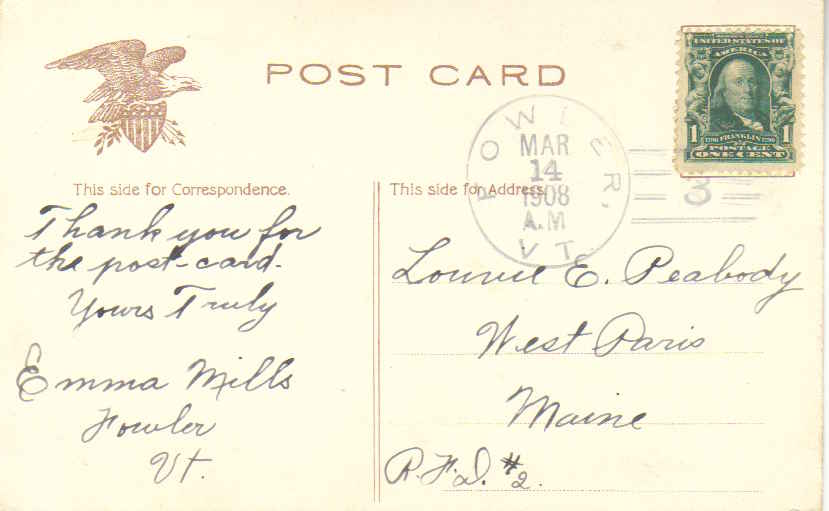 POST CARD
UNITED STATES OF
AMERICA
1 1
1706 FRANKLIN 1790
POSTAGE
ONE CENT
FOWLER,
MAR
14
1908
A.M
VT.
3
This side for Correspondence.
Thank you for
the post-card.
Yours Truly
Emma Mills
Fowler
Vt.
This side for Address.
E. Peabody
West Paris
Maine
R.F.D. #2.